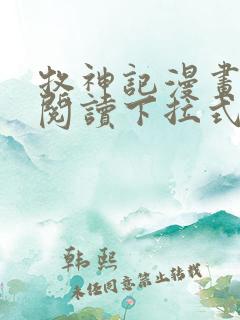 牧神記漫畫
閱讀下拉式
韩熙
未经同意禁止转载